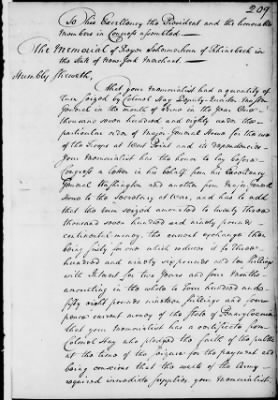 209
To His Excellency the President and the honorable
Members in Congress assembled
The Memorial of Haym Salomonson of Rhinebeck in
the State of New York Merchant
Humbly Sheweth,
That your Memorialist had a quantity of
Rum seized by Colonel Hay Deputy Quarter Master
General in the month of June in the year One
thousand seven hundred and eighty under the
particular order of Major General Howe for the use
of the Troops at West Point and its Dependencies
Your Memorialist has the honor to lay before
Congress a letter in his behalf from his Excellency
General Washington and another from Major General
Howe to the Secretary at War, and has to add
that the rum seized amounted to twenty three
thousand seven hundred and ninety pounds
continental money, the current exchange then
being sixty for one which reduces it to three
hundred and ninety six pounds and ten shillings
with Interest for two years and four Months
amounting in the whole to four hundred and
fifty eight pounds nineteen shillings and four
pence current money of the State of Pennsylvania
that your Memorialist has a certificate from
Colonel Hay who pledged the faith of the public
at the time of the seizure for the payment and
being conscious that the wants of the Army
required immediate supplies your Memorialist